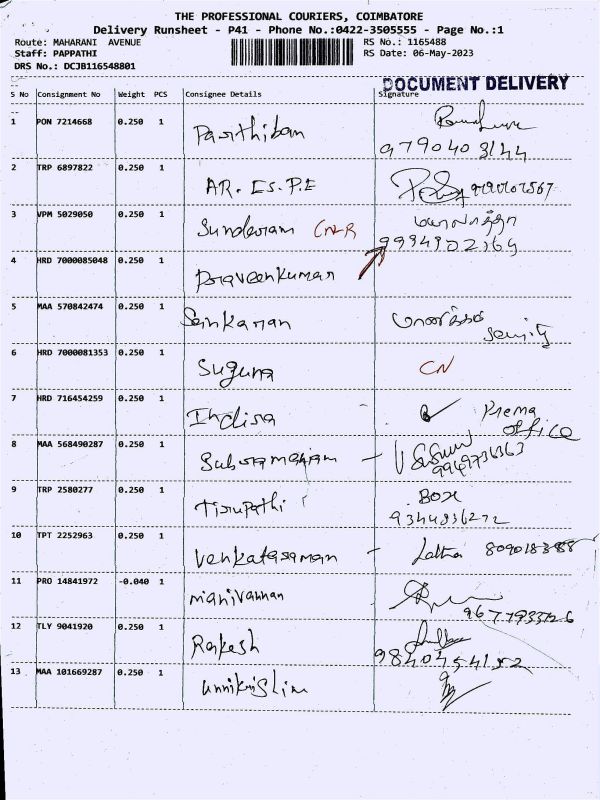 THE PROFESSIONAL COURIERS, COIMBATORE
Delivery Runsheet - P41 - Phone No.:0422-3505555 - Page No.:1
Route: MAHARANI AVENUE RS No.: 1165488
Staff: PAPPATHI RS Date: 06-May-2023
DRS No.: DCJB116548801
DOCUMENT DELIVERY
S No Consignment No Weight PCS Consignee Details Signature
1 PON 7214668 0.250 1 Parthiban
9790403144
2 TRP 6897822 0.250 1 AR. Es. P.E
3 VPM 5029050 0.250 1 Sundaram CNR
9994902164
4 HRD 7000085048 0.250 1 Praveenkumar
5 MAA 570842474 0.250 1 Senkanan
6 HRD 7000081353 0.250 1 Suguna CN
7 HRD 716454259 0.250 1 Indira Prema
office
8 MAA 568490287 0.250 1 Subramaniam -
9 TRP 2580277 0.250 1 Tirupathi Box
9344836272
10 TPT 2252963 0.250 1 Venkataraman - Latha
11 PRO 14841972 -0.040 1 Manivannan
12 TLY 9041920 0.250 1 Rakesh
9840454152
13 MAA 101669287 0.250 1